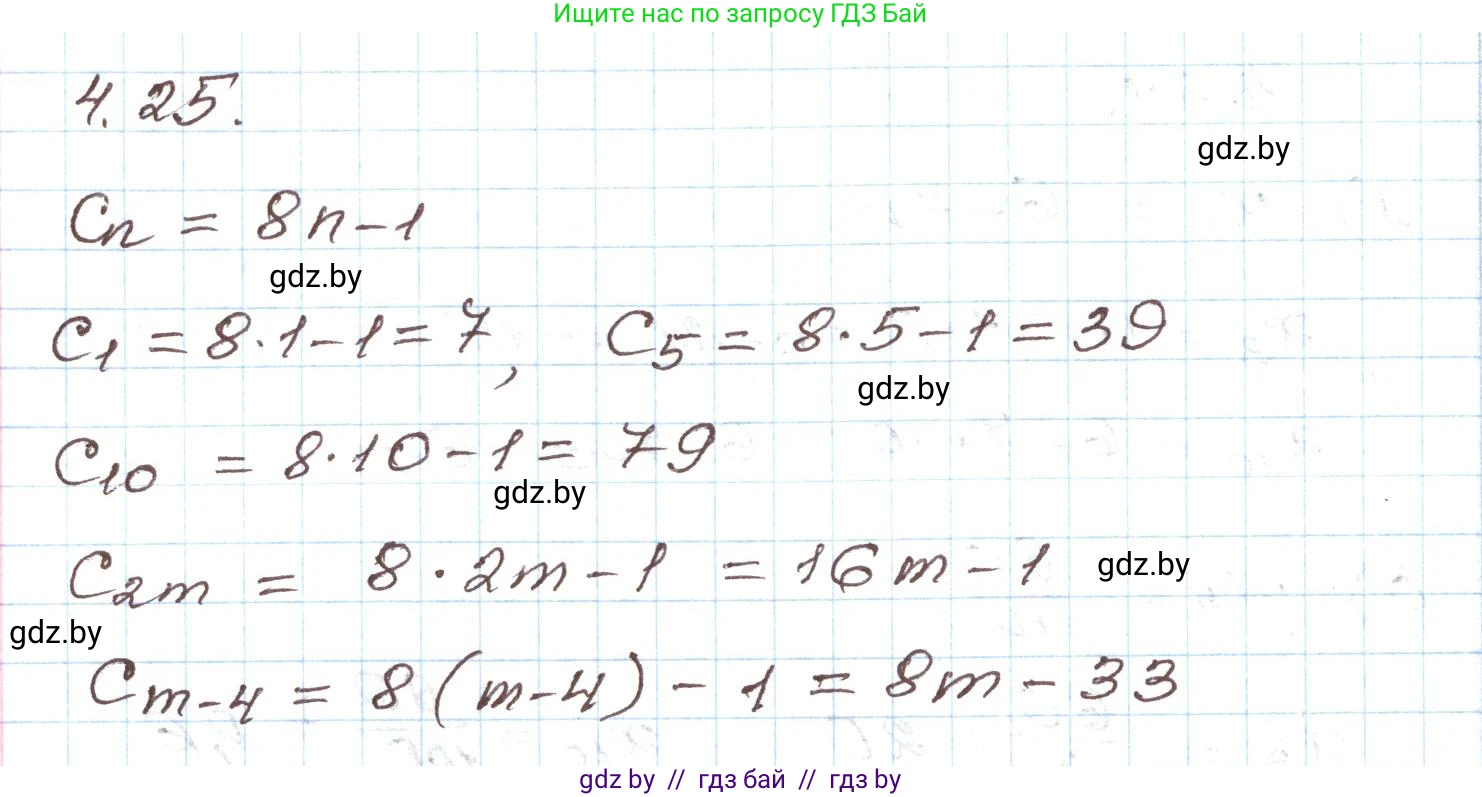 Ищите нас по запросу ГДЗ Бай
4.25.
gdz.by
Cn = 8n-1
gdz.by
C1 = 8·1-1=7, C5 = 8·5-1=39
gdz.by
C10 = 8·10-1= 79
gdz.by
C2m = 8·2m-1 = 16m-1
gdz.by
gdz.by
Cm-4 = 8(m-4)-1 = 8m-33
gdz by // гдз бай // гдз by